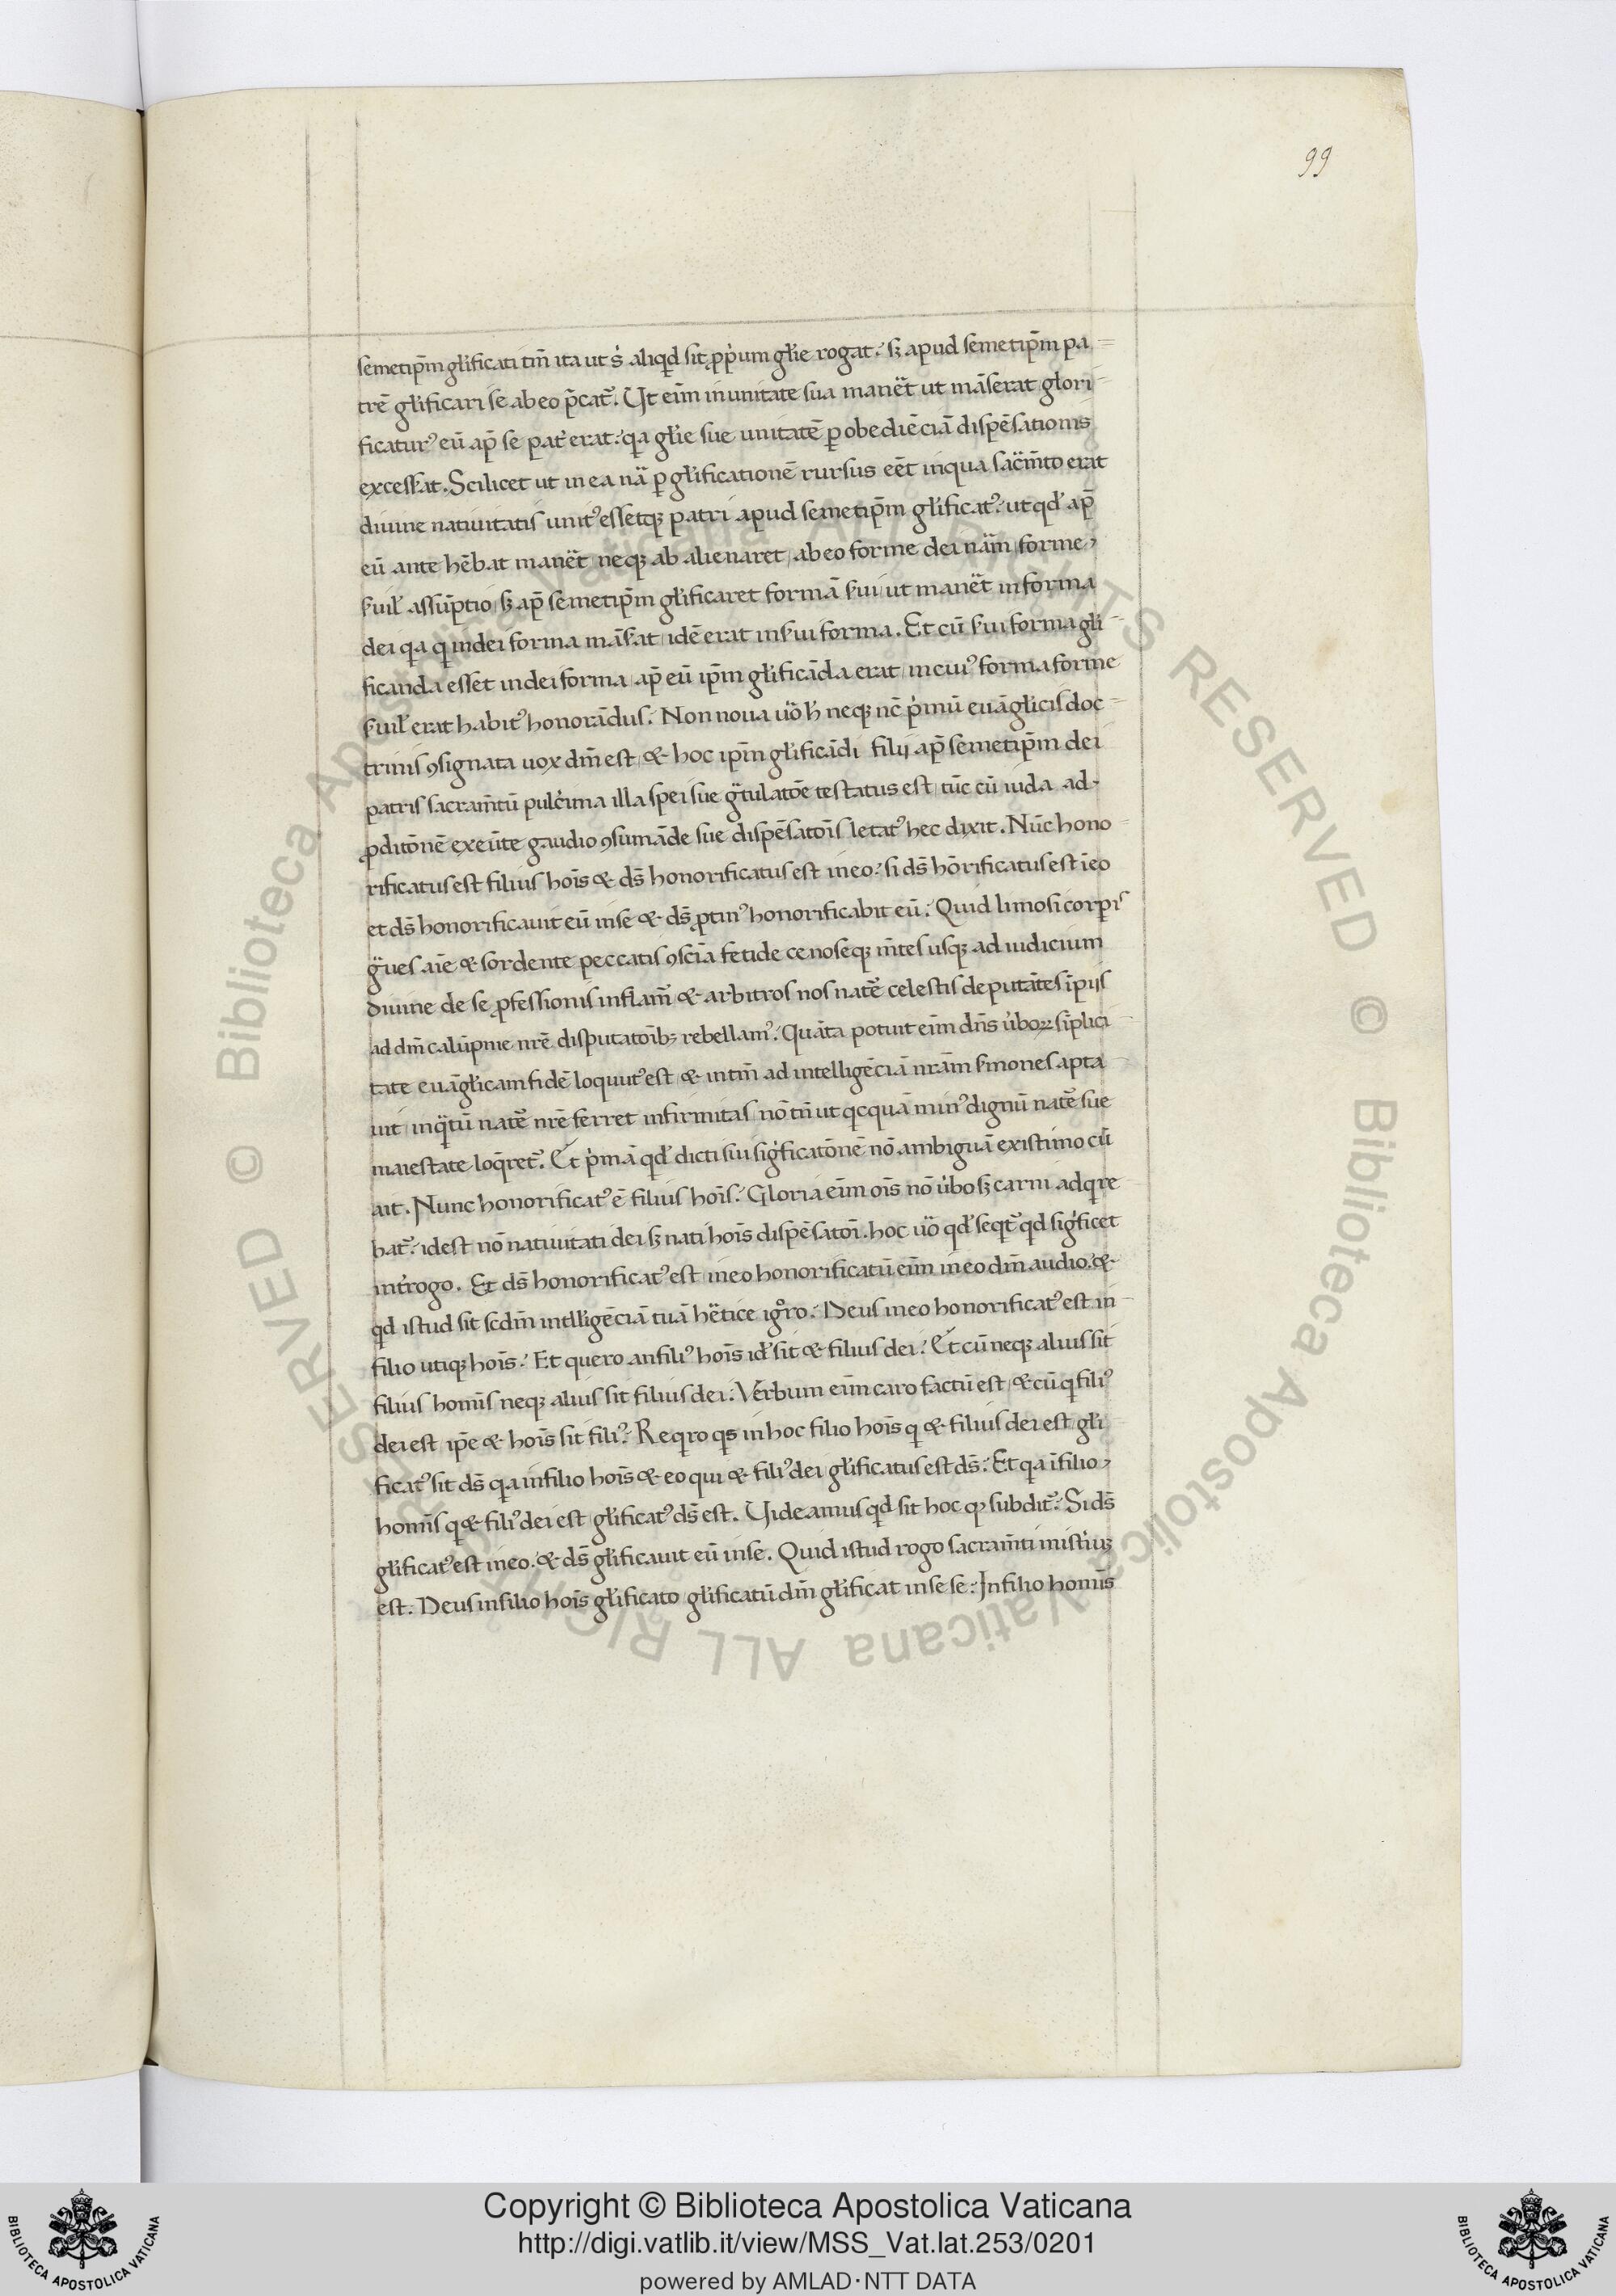 99
semetip̄m gl'ificati tm̄ ita ut s' aliq'd sit p̱p'um gl'ie rogat: sꝫ apud semetip̄m pa=
trē gl'ificari se ab eo p̄cat᷑. Ut eīm in unitate sua manēt ut māserat glori-
ficatur᷒ eū ap̄ se pat' erat: q'a gl'ie sue unitatē ꝑ obediēciā dispēsationis
excesserat. Scilicet ut in ea nā ꝑ gl'ificationē rursus eēt in qua sac̄m̄to erat
diuine natiuitatis unit᷒ essetqꝫ patri apud semetip̄m gl'ificat᷒: ut qd' ap̄
eū ante hēbat manēt neqꝫ ab alienaret ab eo forme dei nām forme
s'uil' assūptio sꝫ ap̄ semetip̄m gl'ificaret formā s'ui ut manēt in forma
dei q'a q' in dei forma māserat idē erat in s'ui forma. Et cū s'ui forma gl'i-
ficanda esset in dei forma ap̄ eū ip̄m gl'ificāda erat in cui᷒ forma forme
s'uil' erat habit᷒ honorādus. Non noua u'o h' neqꝫ nc̄ p'mū euāgl'icis doc-
trinis ꝯsignata uox dn̄i est & hoc ip̄m gl'ificādi filij ap̄ semetip̄m dei
patris sacram̄tū pulc'ima illa spei sue g'tulatōe testatus est tūc cū iuda ad
ꝓditōnē exeūte gaudio ꝯsumāde sue dispēsatōis letat᷒ hec dixit. Nūc hono-
rificatus est filius hoīs & ds̄ honorificatus est in eo: si ds̄ hōrificatus est ī eo
et ds̄ honorificauit eū in se & ds̄ ꝓtin᷒ honorificabit eū: Quid limosi corꝑis
g'ues aīe & sordente peccatis ꝯsciā fetide cenoseqꝫ m̄tes usqꝫ ad iudicium
diuine de se ꝓfessionis inflam̄ & arbitros nos natē celestis deputātes īpijs
ad dm̄ calūpnie nrē disputatoībꝫ rebellam᷒: Quāta potuit eīm dn̄s u'boꝝ sīplici
tate euāgl'icam fidē loquut᷒ est & in tm̄ ad intelligēciā nrām s'mones apta
uit inq'tū natē nrē ferret infirmitas nō tn̄ ut q'cquā min᷒ dignū natē sue
maiestate loq̄ret᷑. Et p'mā qd' dicti sui sig'ficatōnē nō ambiguā existimo cū
ait. Nunc honorificat᷒ ē filius hoīs: Gloria eīm oīs nō u'bo sꝫ carni adq're
bat᷑: id est nō natiuitati dei sꝫ nati hoīs dispēsatoī. hoc u'o qd' seqt᷑ q'd sig'ficet
int'rogo. Et ds̄ honorificat᷒ est in eo honorificatū eīm in eo dm̄ audio: &
q'd istud sit scdm̄ intll'igēciā tuā hētice ig'ro: Deus in eo honorificat᷒ est in
filio utiqꝫ hoīs: Et quero an fili᷒ hoīs id' sit & filius dei: Et cū neqꝫ alius sit
filius homīs neqꝫ alius sit filius dei: Verbum eīm caro factū est & cū q' fili᷒
dei est ip̄e & hoīs sit fili᷒: Req'ro q's in hoc filio hoīs q' & filius dei est gl'i
ficat᷒ sit ds̄ q'a in filio hoīs & eo qui & fili᷒ dei gl'ificatus est ds̄: Et q'a ī filio
homīs q' & fili᷒ dei est gl'ificat᷒ ds̄ est. Uideamus q'd sit hoc qꝫ subdit᷑: Si ds̄
gl'ificat᷒ est in eo: & ds̄ gl'ificauit eū in se. Quid istud rogo sacram̄ti
est. Deus in filio hoīs gl'ificato gl'ificatū dm̄ gl'ificat in sese: In filio homīs
Copyright © Biblioteca Apostolica Vaticana
http://digi.vatlib.it/view/MSS_Vat.lat.253/0201
powered by AMLAD·NTT DATA
BIBLIOTECA APOSTOLICA VATICANA
BIBLIOTECA APOSTOLICA VATICANA
© Biblioteca Apostolica Vaticana ALL RIGHTS RESERVED © Biblioteca Apostolica Vaticana ALL RIGHTS RESERVED